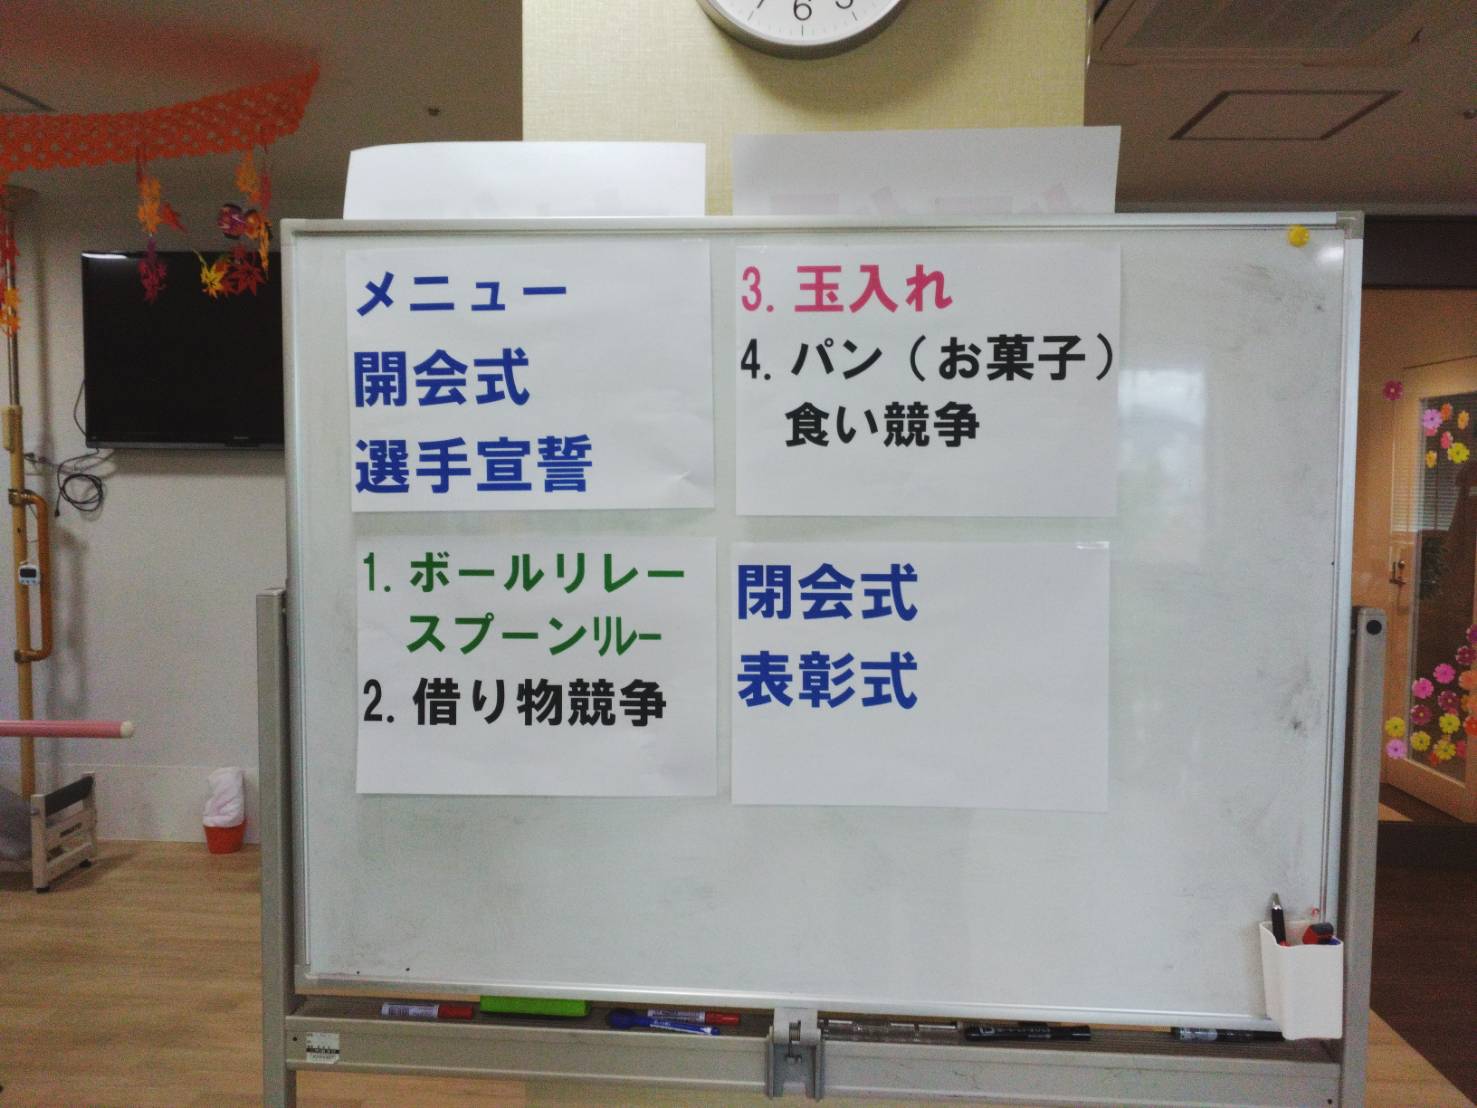 メニュー
開会式
選手宣誓
1. ボールリレー
スプーンリレー
2. 借り物競争
3. 玉入れ
4. パン（お菓子）
食い競争
閉会式
表彰式
6